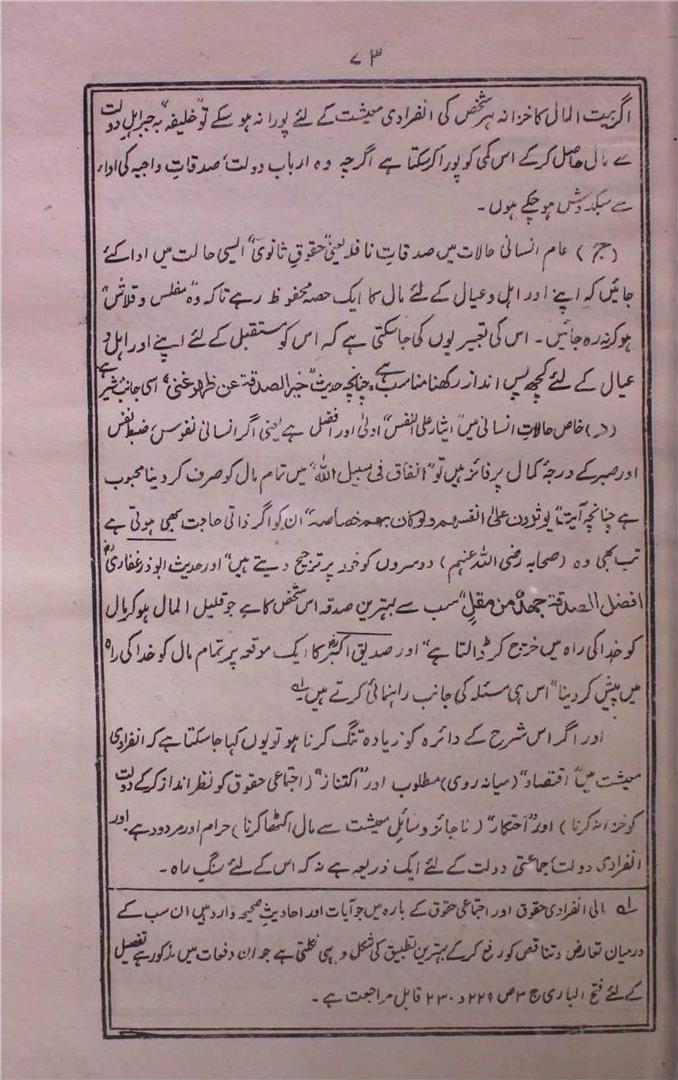 ۷۳
اگر بیت المال کا خزانہ ہر شخص کی انفرادی معیشت کے لئے پورا نہ ہو سکے تو "خلیفہ" بہ جبر اہل دولت
سے مال حاصل کرکے اس کمی کو پورا کرسکتا ہے اگرچہ وہ ارباب دولت، صدقاتِ واجبہ کی ادار
سے سبکدوش ہو چکے ہوں۔
(ج) عام انسانی حالات میں صدقاتِ نافلہ یعنی "حقوقِ ثانوی" ایسی حالت میں ادا کئے
جائیں کہ اپنے اور اہل و عیال کے لئے مال کا ایک حصہ محفوظ رہے تاکہ وہ "مفلس و قلاش"
ہو کر نہ رہ جائیں۔ اس کی تعبیر یوں کی جاسکتی ہے کہ اس کو مستقبل کے لئے اپنے اور اہل و
عیال کے لئے کچھ پس انداز رکھنا مناسب ہے، چنانچہ حدیث "خیر الصدقة عن ظهر غنی" اسی جانب مشیر ہے
(د) خاص حالاتِ انسانی میں "ایثار علی النفس" اولیٰ اور افضل ہے یعنی اگر انسانی نفوس ضبطِ نفس
اور صبر کے درجۂ کمال پر فائز ہیں تو "انفاق فی سبیل اللہ" میں تمام مال کو صرف کر دینا محبوب
ہے چنانچہ آیت "یوثرون علیٰ انفسهم ولو کان بهم خصاصه" ان کو اگر ذاتی حاجت بھی ہوتی ہے
تب بھی وہ (صحابہ رضی اللہ عنہم) دوسروں کو خود پر ترجیح دیتے ہیں" اور حدیث ابوذر غفاریؓ
افضل الصدقة جهد من مقلٍ "سب سے بہترین صدقہ اس شخص کا ہے جو قلیل المال ہو کر مال
کو خدا کی راہ میں خرچ کر ڈالتا ہے" اور صدیق اکبرؓ کا ایک موقعہ پر تمام مال کو خدا کی راہ
میں پیش کر دینا "اس ہی مسئلہ کی جانب راہنمائی کرتے ہیں۔ لہ
اور اگر اس شرح کے دائرہ کو زیادہ تنگ کرنا ہو تو یوں کہا جاسکتا ہے کہ انفرادی
معیشت میں "اقتصاد" (میانہ روی) مطلوب اور "اکتناز" (اجتماعی حقوق کو نظر انداز کرکے دولت
کو خزانہ کرنا) اور "احتکار" (ناجائز وسائلِ معیشت سے مال اکٹھا کرنا) حرام اور مردود ہے، اور
انفرادی دولت، جماعتی دولت کے لئے ایک ذریعہ ہے نہ کہ اس کے لئے سنگِ راہ۔
لہ مالی انفرادی حقوق اور اجتماعی حقوق کے بارہ میں جو آیات اور احادیثِ صحیحہ وارد ہیں ان سب کے
درمیان تعارض و تناقض کو رفع کرکے بہترین تطبیق کی شکل وہی نکلتی ہے جو ان دفعات میں مذکور ہے تفصیل
کے لئے فتح الباری ج ۳ ص ۲۲۹ و ۲۳۰ قابلِ مراجعت ہے۔